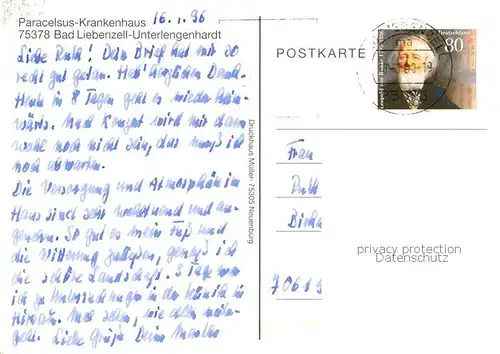 Paracelsus-Krankenhaus 16.1.96
75378 Bad Liebenzell-Unterlengenhardt
Liebe Ruth! Dein Brief hat mir so
recht gut getan. Hab herzlichen Dank.
Heute in 8 Tagen geht es wieder heim-
wärts. Nach wird mir dann
wohl noch nicht sein, das muß ich
noch abwarten.
Die Versorgung und Atmosphäre im
Haus sind sehr wohltuend und an-
genehm. So gut es mein Fuß und
die Witterung zulassen, genieß ich
die schöne Landschaft. 3 Tage war
ich zu Untersuchungen in der Klinik in
Hirsau. Mal sehen, wie alles weiter-
geht. Liebe Grüße Deine
Druckhaus Müller · 75305 Neuenbürg
POSTKARTE
Deutschland
80
Leopold von Ranke 1795-1886
Frau
Ruth
70619
privacy protection
Datenschutz